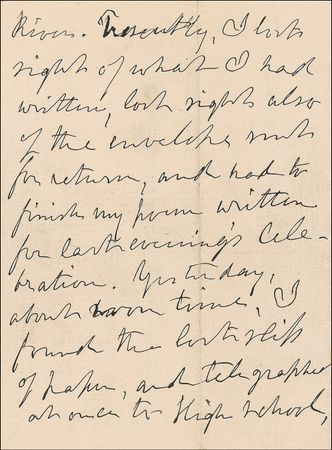 River. Presently, I lost
sight of what I had
written, lost sight also
of the envelope sent
for return, and had to
finish my poem written
for last evening's Cele-
bration. Yesterday,
about noon time, I
found the lost slip
of paper, and telegraphed
at once to High School,